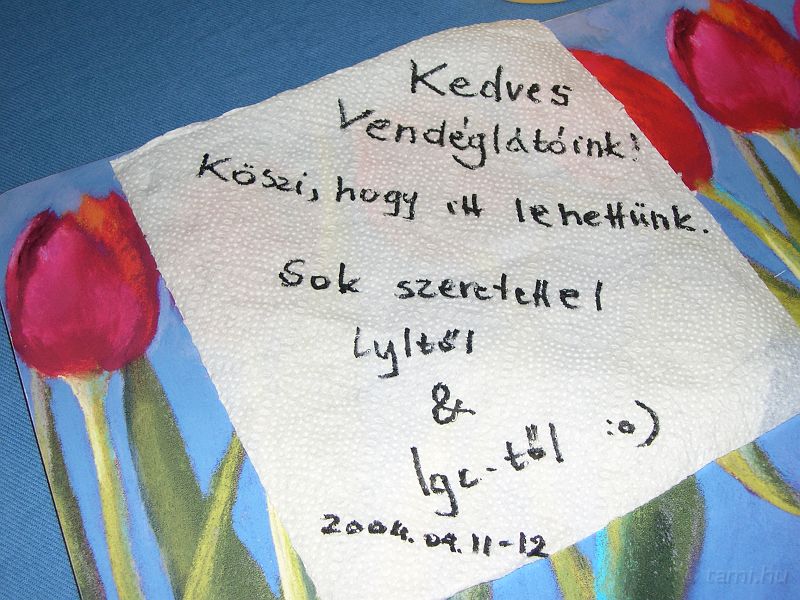 Kedves
Vendéglátóink!
Köszi, hogy itt lehettünk.
Sok szeretettel
Lyltől
&
Igc-től :o)
2004.09.11-12
tami.hu